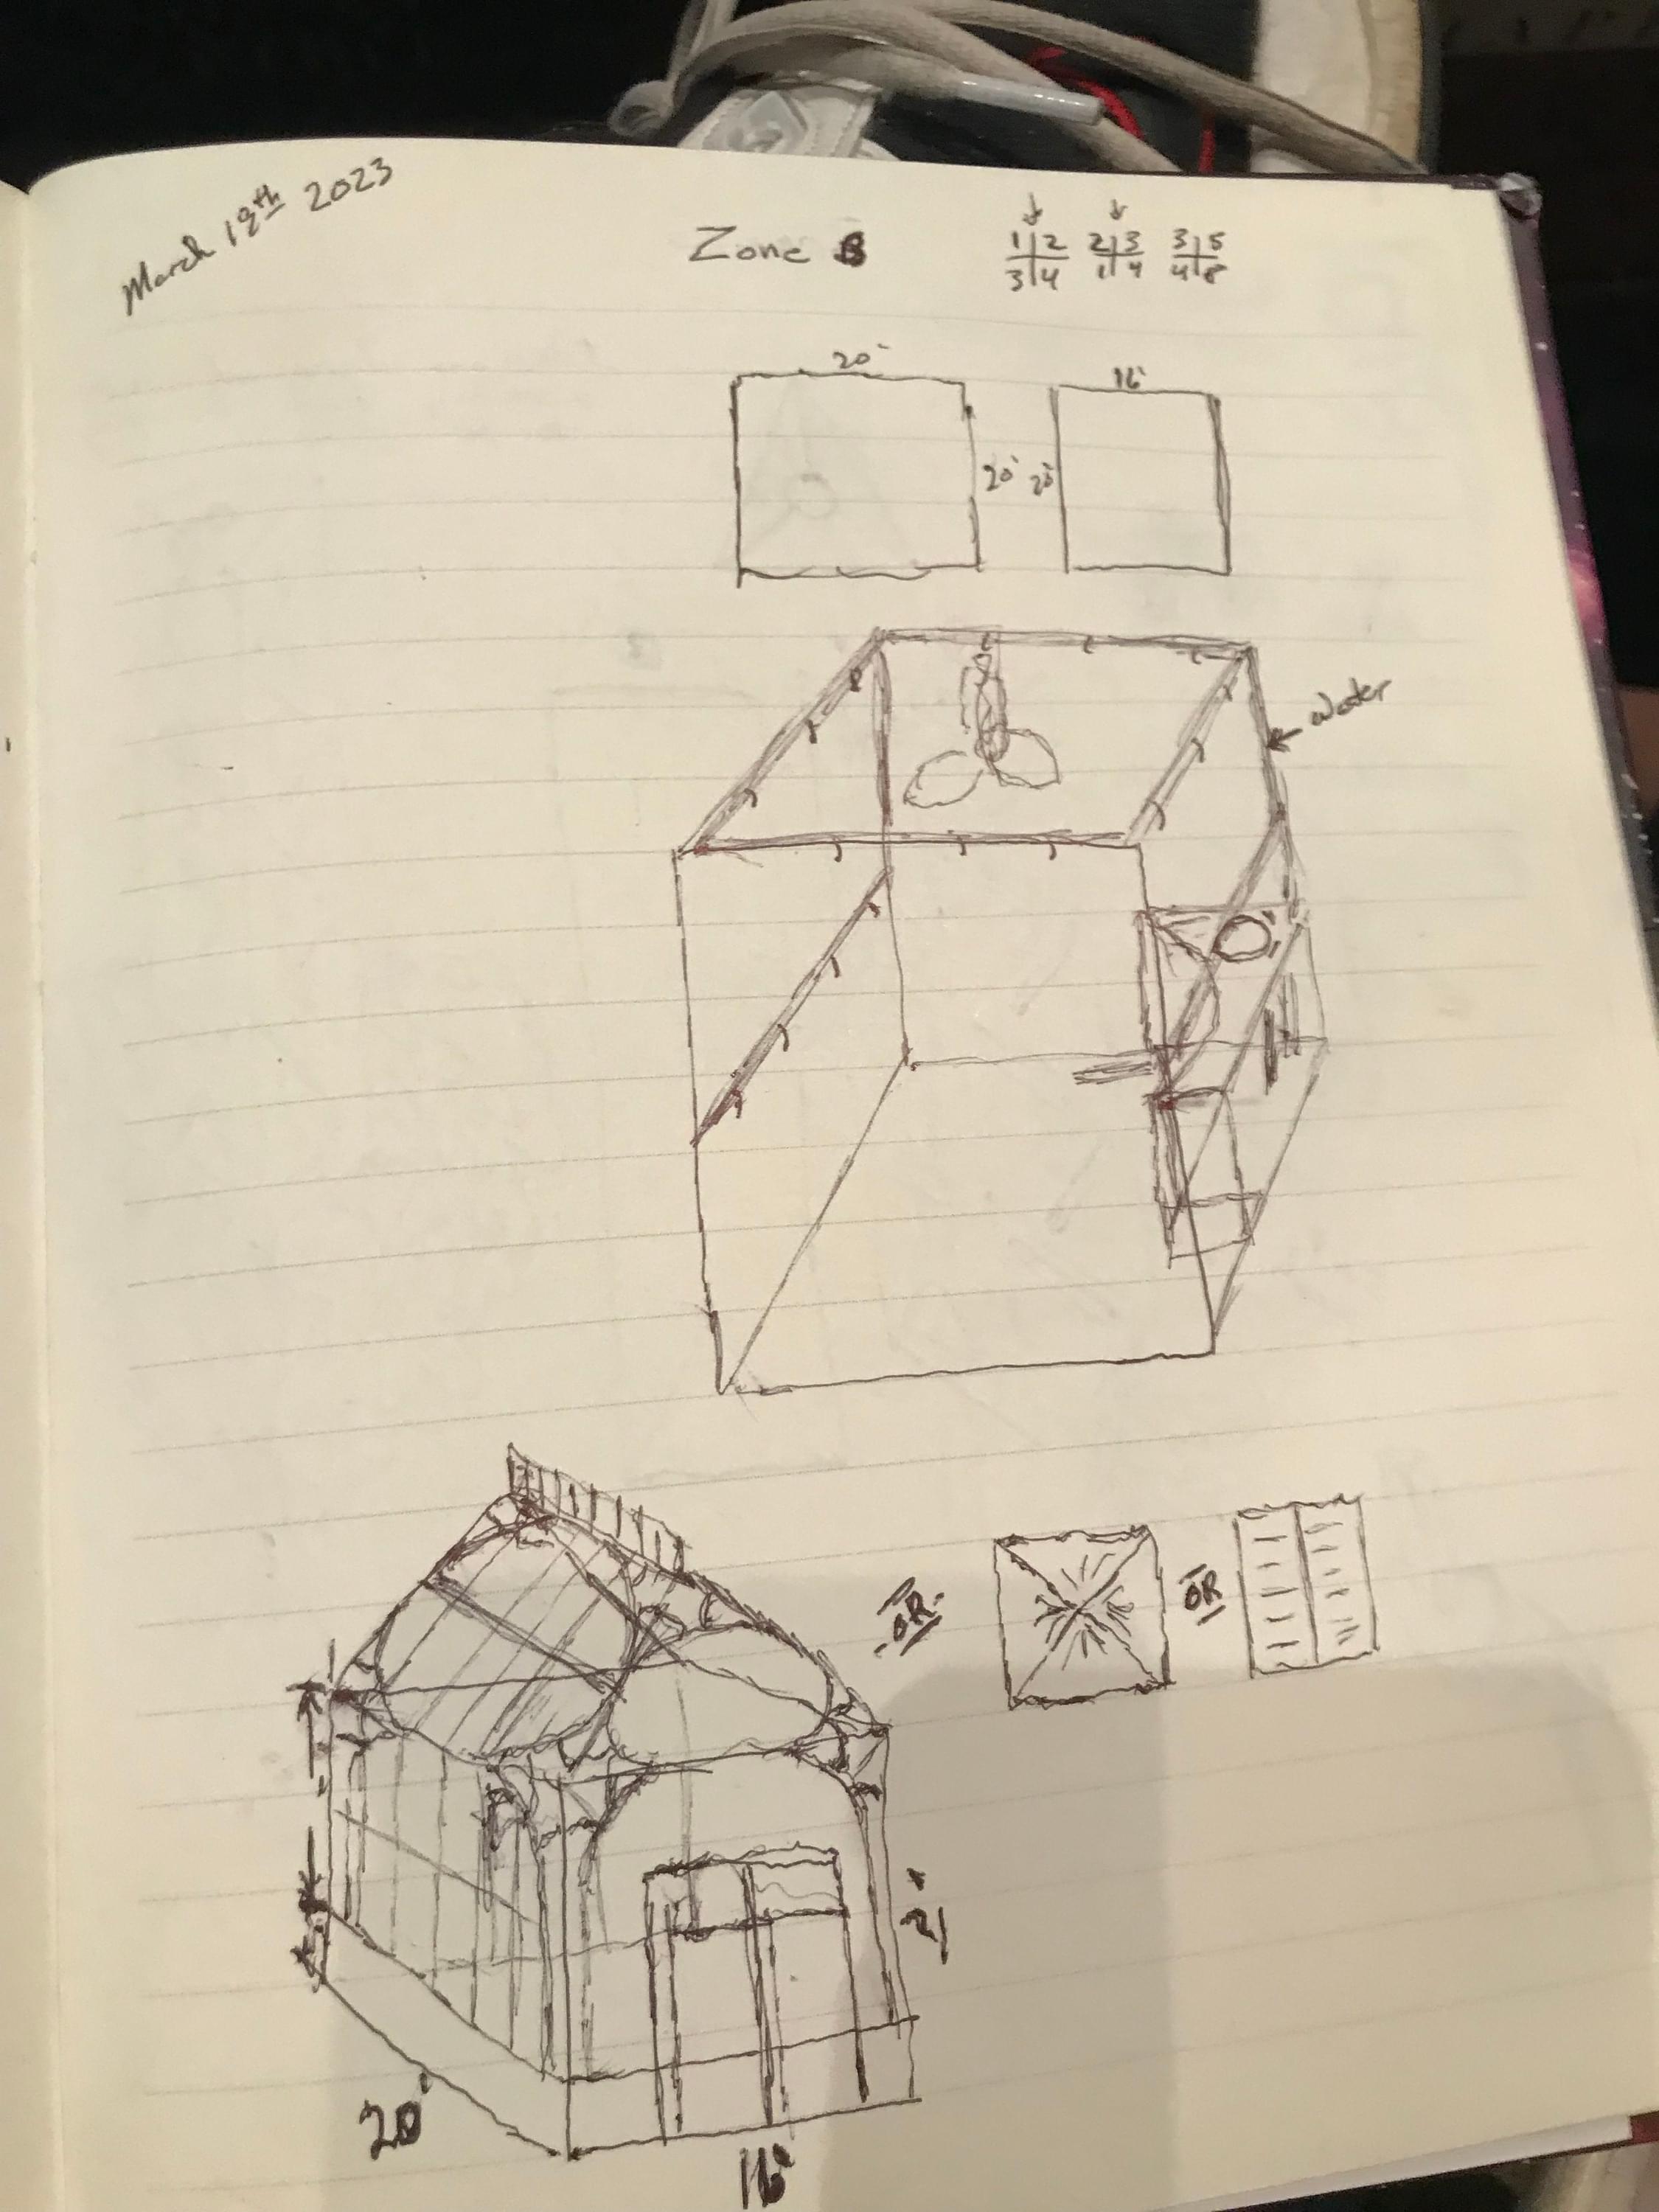 March 18th 2023
Zone B
1 2 2 3 3 5
3 4 1 4 4 8
20' 16'
20' 20'
Water
-OR- OR
20' 16'